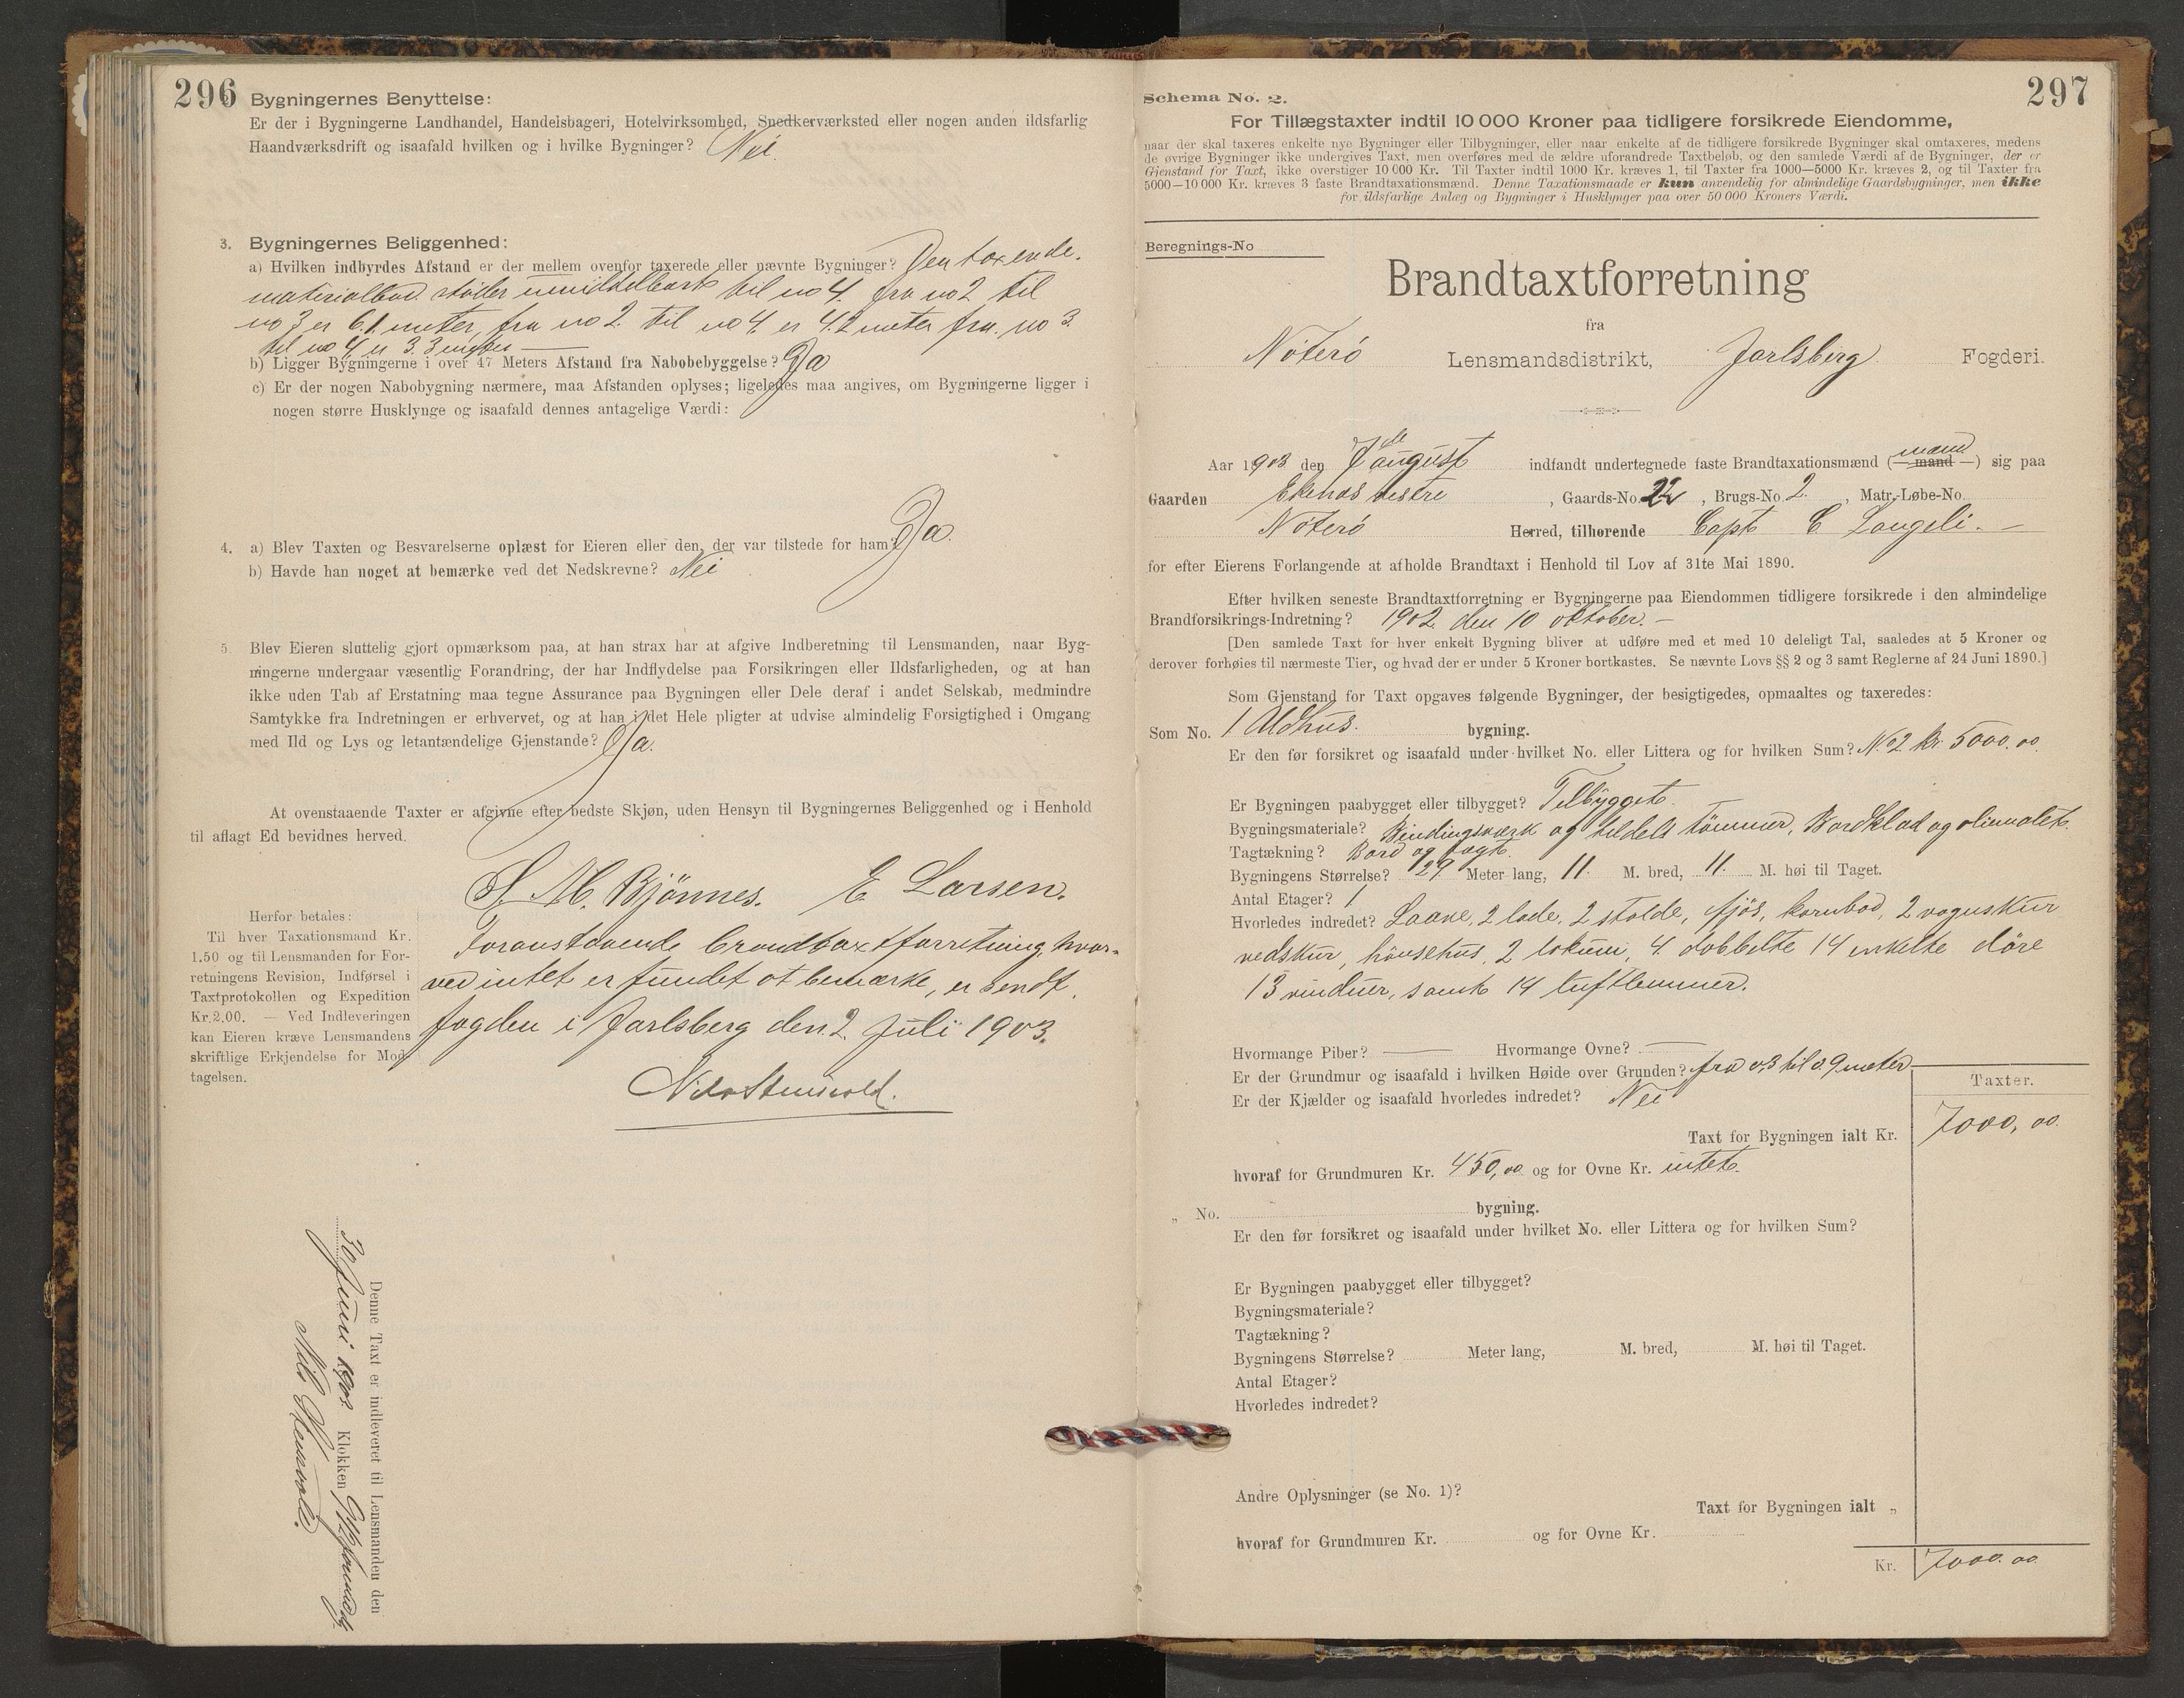 296
Bygningernes Benyttelse:
Er der i Bygningerne Landhandel, Handelsbageri, Hotelvirksomhed, Snedkerværksted eller nogen anden ildsfarlig
Haandværksdrift og isaafald hvilken og i hvilke Bygninger? Nei.
3. Bygningernes Beliggenhed:
a) Hvilken indbyrdes Afstand er der mellem ovenfor taxerede eller nævnte Bygninger? Den taxerede.
materialbod støder umiddelbart til no 4. fra no 2 til
no 3 er 6.1 meter, fra no 2. til no 4 er 4.2 meter fra no 3
til no 4 er 3.3 meter
b) Ligger Bygningerne i over 47 Meters Afstand fra Nabobebyggelse? Ja
c) Er der nogen Nabobygning nærmere, maa Afstanden oplyses; ligeledes maa angives, om Bygningerne ligger i
nogen større Husklynge og isaafald dennes antagelige Værdi:
4. a) Blev Taxten og Besvarelserne oplæst for Eieren eller den, der var tilstede for ham? Ja.
b) Havde han noget at bemærke ved det Nedskrevne? Nei
5. Blev Eieren sluttelig gjort opmærksom paa, at han strax har at afgive Indberetning til Lensmanden, naar Byg-
ningerne undergaar væsentlig Forandring, der har Indflydelse paa Forsikringen eller Ildsfarligheden, og at han
ikke uden Tab af Erstatning maa tegne Assurance paa Bygningen eller Dele deraf i andet Selskab, medmindre
Samtykke fra Indretningen er erhvervet, og at han i det Hele pligter at udvise almindelig Forsigtighed i Omgang
med Ild og Lys og letantændelige Gjenstande? Ja.
At ovenstaaende Taxter er afgivne efter bedste Skjøn, uden Hensyn til Bygningernes Beliggenhed og i Henhold
til aflagt Ed bevidnes herved.
S. M. Bjönnes. E Larsen.
Herfor betales:
Til hver Taxationsmand Kr.
1.50 og til Lensmanden for For-
retningens Revision, Indførsel i
Taxtprotokollen og Expedition
Kr. 2.00. — Ved Indleveringen
kan Eieren kræve Lensmandens
skriftlige Erkjendelse for Mod-
tagelsen.
Foranstaaende brandtaxtforretning, hvor-
ved intet er fundet at bemærke, er sendt
fogden i Jarlsberg den 2. Juli 1903.
Nils Stenvold.
Denne Taxt er indleveret til Lensmanden den
30 Juni 1903 Klokken 9 1/2 formidg.
Nils Stenvold.
297
Schema No. 2.
For Tillægstaxter indtil 10 000 Kroner paa tidligere forsikrede Eiendomme,
naar der skal taxeres enkelte nye Bygninger eller Tilbygninger, eller naar enkelte af de tidligere forsikrede Bygninger skal omtaxeres, medens
de øvrige Bygninger ikke undergives Taxt, men overføres med de ældre uforandrede Taxtbeløb, og den samlede Værdi af de Bygninger, der er
Gjenstand for Taxt, ikke overstiger 10 000 Kr. Til Taxter indtil 1000 Kr. kræves 1, til Taxter fra 1000—5000 Kr. kræves 2, og til Taxter fra
5000—10 000 Kr. kræves 3 faste Brandtaxationsmænd. Denne Taxationsmaade er kun anvendelig for almindelige Gaardsbygninger, men ikke
for ildsfarlige Anlæg og Bygninger i Husklynger paa over 50 000 Kroners Værdi.
Beregnings-No
Brandtaxtforretning
fra
Nöterö Lensmandsdistrikt, Jarlsberg Fogderi.
Aar 1903 den 7de august indfandt undertegnede faste Brandtaxationsmænd (mand mænd) sig paa
Gaarden Ekenes vestre, Gaards-No. 22, Brugs-No. 2., Matr.-Løbe-No.
Nöterö Herred, tilhørende Capt C Langeli. —
for efter Eierens Forlangende at afholde Brandtaxt i Henhold til Lov af 31te Mai 1890.
Efter hvilken seneste Brandtaxtforretning er Bygningerne paa Eiendommen tidligere forsikrede i den almindelige
Brandforsikrings-Indretning? 1902 den 10 oktober. —
[Den samlede Taxt for hver enkelt Bygning bliver at udføre med et med 10 deleligt Tal, saaledes at 5 Kroner og
derover forhøies til nærmeste Tier, og hvad der er under 5 Kroner bortkastes. Se nævnte Lovs §§ 2 og 3 samt Reglerne af 24 Juni 1890.]
Som Gjenstand for Taxt opgaves følgende Bygninger, der besigtigedes, opmaaltes og taxeredes:
Som No. 1 Udhus. bygning.
Er den før forsikret og isaafald under hvilket No. eller Littera og for hvilken Sum? No 2 kr. 5000.00
Er Bygningen paabygget eller tilbygget? Tilbygget.
Bygningsmateriale? Bindingsværk og tildels tömmer, Bordklæd og oliemalet.
Tagtækning? Bord og tagt.
Bygningens Størrelse? 29 Meter lang, 11. M. bred, 11. M. høi til Taget.
Antal Etager? 1
Hvorledes indredet? Laave, 2 lade, 2 stalde, fjös, kornbod, 2 vognskur
vedskur, hönsehus, 2 lokum, 4 dobbelte 14 enkelte döre
13 vinduer, samt 14 luftlemmer.
Hvormange Piber? — Hvormange Ovne? —
Er der Grundmur og isaafald i hvilken Høide over Grunden? fra 0,3 til 0.9 meter
Er der Kjælder og isaafald hvorledes indredet? Nei
Taxter.
Taxt for Bygningen ialt Kr. 7000,00
hvoraf for Grundmuren Kr. 450,00 og for Ovne Kr. intet.
„ No. bygning.
Er den før forsikret og isaafald under hvilket No. eller Littera og for hvilken Sum?
Er Bygningen paabygget eller tilbygget?
Bygningsmateriale?
Tagtækning?
Bygningens Størrelse? Meter lang, M. bred, M. høi til Taget.
Antal Etager?
Hvorledes indredet?
Andre Oplysninger (se No. 1)?
Taxt for Bygningen ialt „
hvoraf for Grundmuren Kr. og for Ovne Kr.
Kr. 7000.00